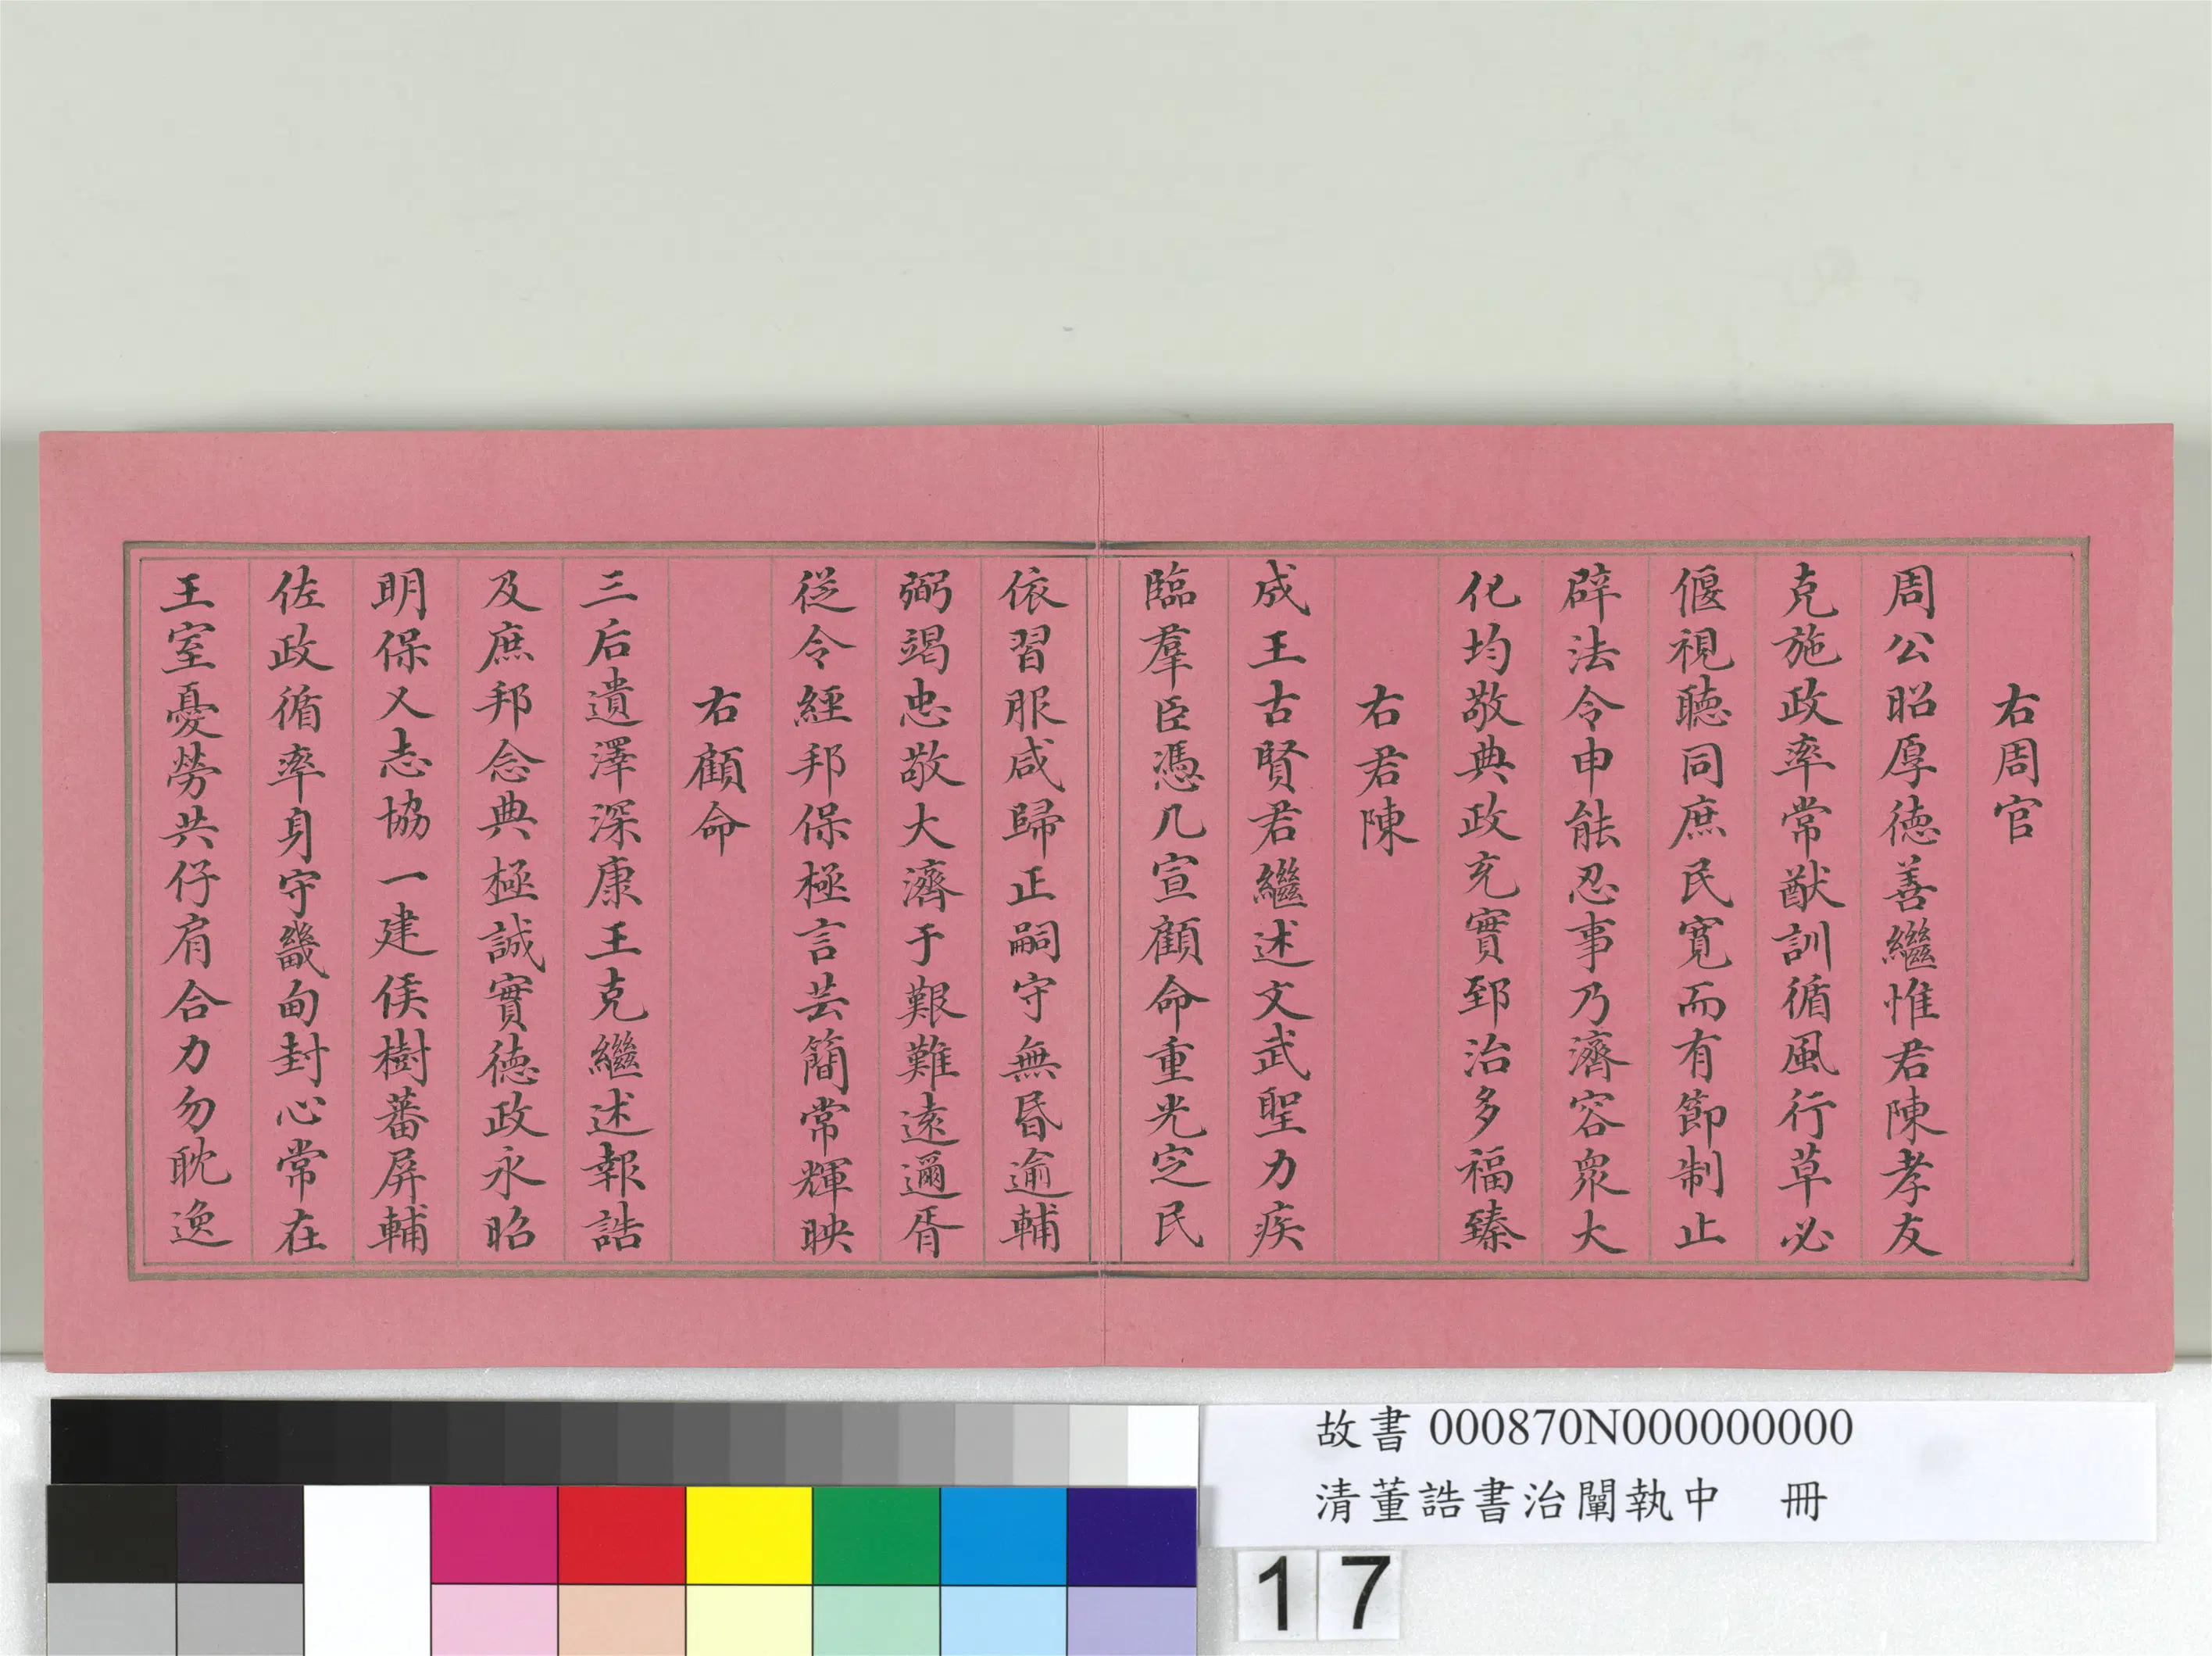 右周官
周公昭厚德善繼惟君陳孝友
克施政率常猷訓循風行草必
偃視聽同庶民寬而有節制止
辟法令申能忍事乃濟容眾大
化均敬典政充實郅治多福臻
右君陳
成王古賢君繼述文武聖力疾
臨羣臣憑几宣顧命重光定民
依習服咸歸正嗣守無昏逾輔
弼竭忠敬大濟于艱難遠邇胥
從令經邦保極言芸簡常輝映
右顧命
三后遺澤深康王克繼述報誥
及庶邦念典極誠實德政永昭
明保乂志協一建侯樹蕃屏輔
佐政循率身守畿甸封心常在
王室憂勞共仔肩合力勿耽逸
故書 000870N000000000
清董誥書治闡執中 冊
17